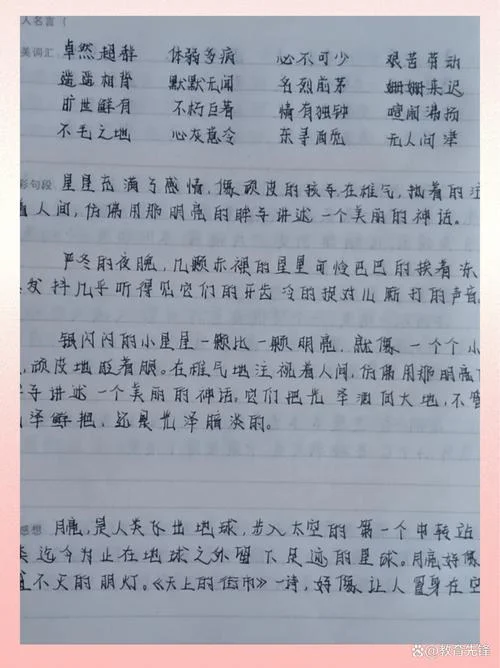 人名言（
美词汇 卓然超群 体弱多病 心不可少 艰苦劳动
遥遥相背 默默无闻 名列前茅 姗姗来迟
旷世鲜有 不朽巨著 情有独钟 喧闹沸扬
不毛之地 心灰意冷 东寻西觅 无人问津
彩句段 星星充满了感情，像顽皮的孩子在稚气，执着的注
着人间，仿佛用那明亮的眸子讲述一个美丽的神话。
严冬的夜晚，几颗赤裸的星星可怜巴巴的挨着冻
发抖几乎听得见它们的牙齿冷的捉对儿厮打的声音
银闪闪的小星星一颗比一颗明亮，就像一个个小
，顽皮地眨着眼。在稚气地注视着人间，仿佛用那明亮
子讲述一个美丽的神话。它们把光泽洒向大地，不管
泽鲜艳，还是光泽暗淡的。
感想 月亮，是人类飞出地球，步入太空的第一个中转站
类迄今为止在地球之外留下足迹的星球。月亮好像
不灭的明灯。《天上的街市》一诗，好像让人置身在空
@教育先锋